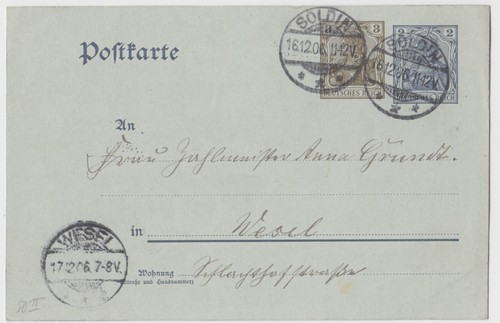 Postkarte
SOLDIN
16.12.06. 11-12V.
3 3
DEUTSCHES REICH
SOLDIN
16.12.06. 11-12V.
2 2
DEUTSCHES REICH
An
Frau Zahlmeister Anna Grundt.
in Wesel
WESEL
17.12.06. 7-8V.
Wohnung Schlachthofstraße
(Straße und Hausnummer)